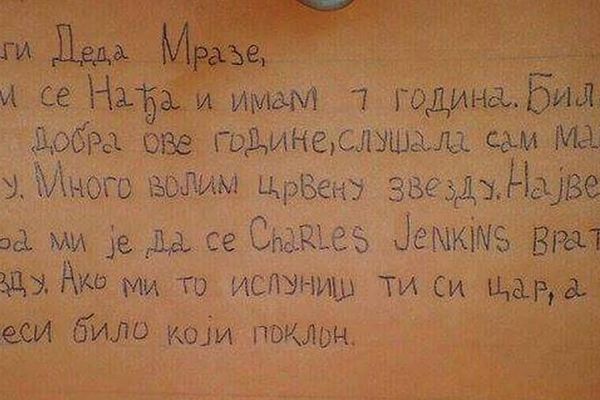 ги Деда Мразе,
м се Нађа и имам 7 година. Бил
добра ове године, слушала сам ма
у. Много волим црвену звезду. Најве
ра ми је да се CHARLES JENKINS врат
зду. Ако ми то испуниш ти си цар, а
еси било који поклон.